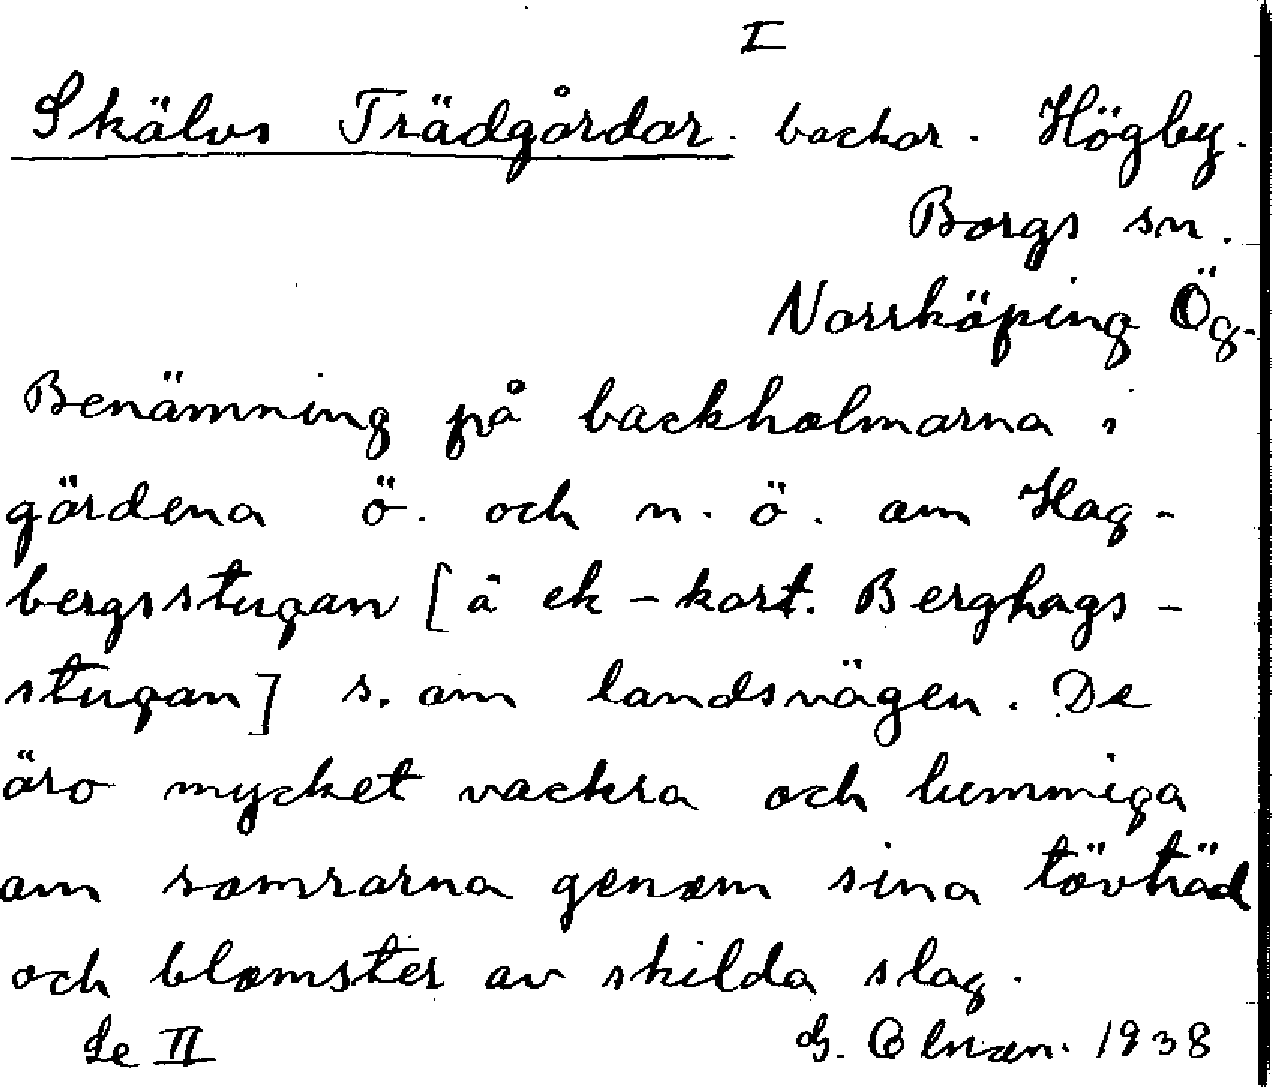 I
Skälvs Trädgårdar. backar. Högby.
Borgs sn.
Norrköping Ög.
Benämning på backholmarna i
gärdena ö. och n. ö. om Hag-
bergsstugan [å ek-kart. Berghags-
stugan] s. om landsvägen. De
äro mycket vackra och lummiga
om somrarna genom sina lövträd
och blomster av skilda slag.
Se II
G. 1938